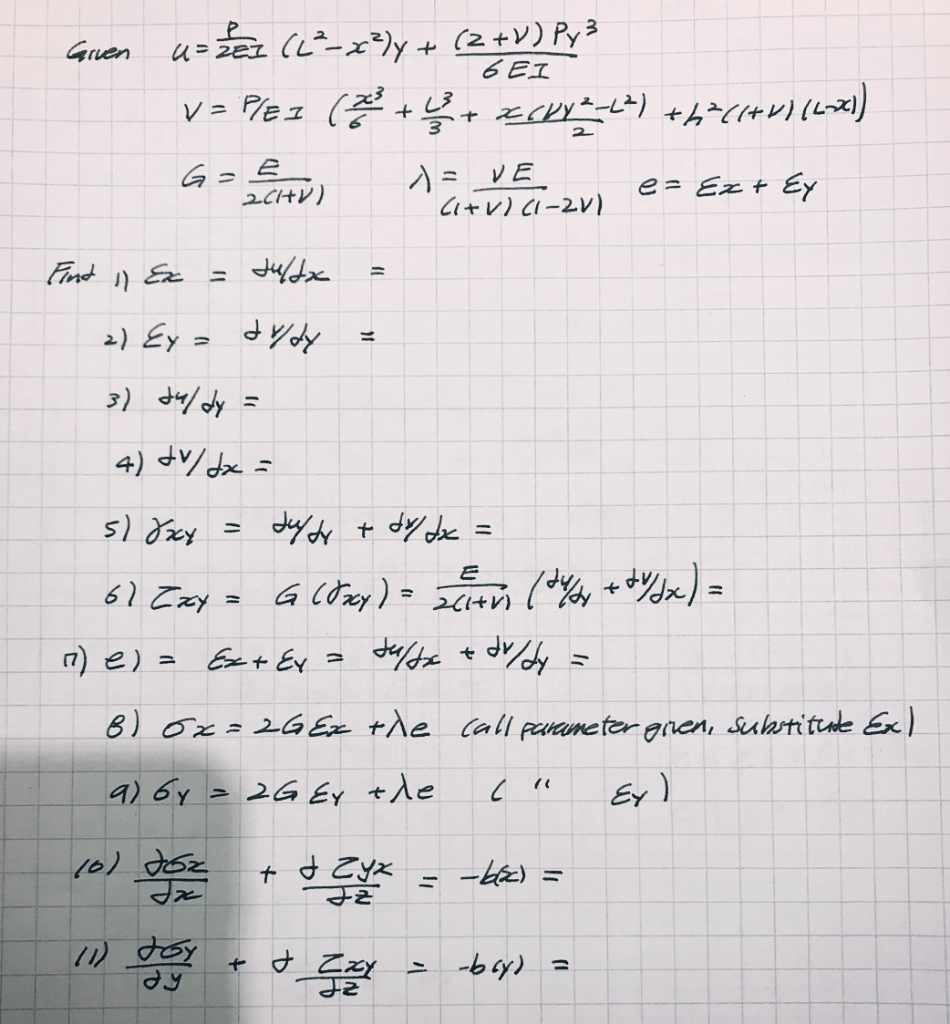 Given u = P/2EI (L² - x²)y + (2+ν) Py³ / 6EI
V = P/EI (x³/6 + L³/3 + x(νy² - L²)/2 + h²(1+ν)(L-x))
G = E / 2(1+ν)   λ = νE / (1+ν)(1-2ν)   e = Ex + Ey
Find 1) Ex = du/dx =
2) Ey = dv/dy =
3) du/dy =
4) dv/dx =
5) γxy = du/dy + dv/dx =
6) τxy = G(γxy) = E / 2(1+ν) (du/dy + dv/dx) =
7) e) = Ex + Ey = du/dx + dv/dy =
8) σx = 2GEx + λe (all parameter given, substitute Ex)
9) σy = 2GEy + λe ( " Ey)
10) dσx/dx + dτyx/dz = -b(x) =
11) dσy/dy + d τxy/dz = -b(y) =